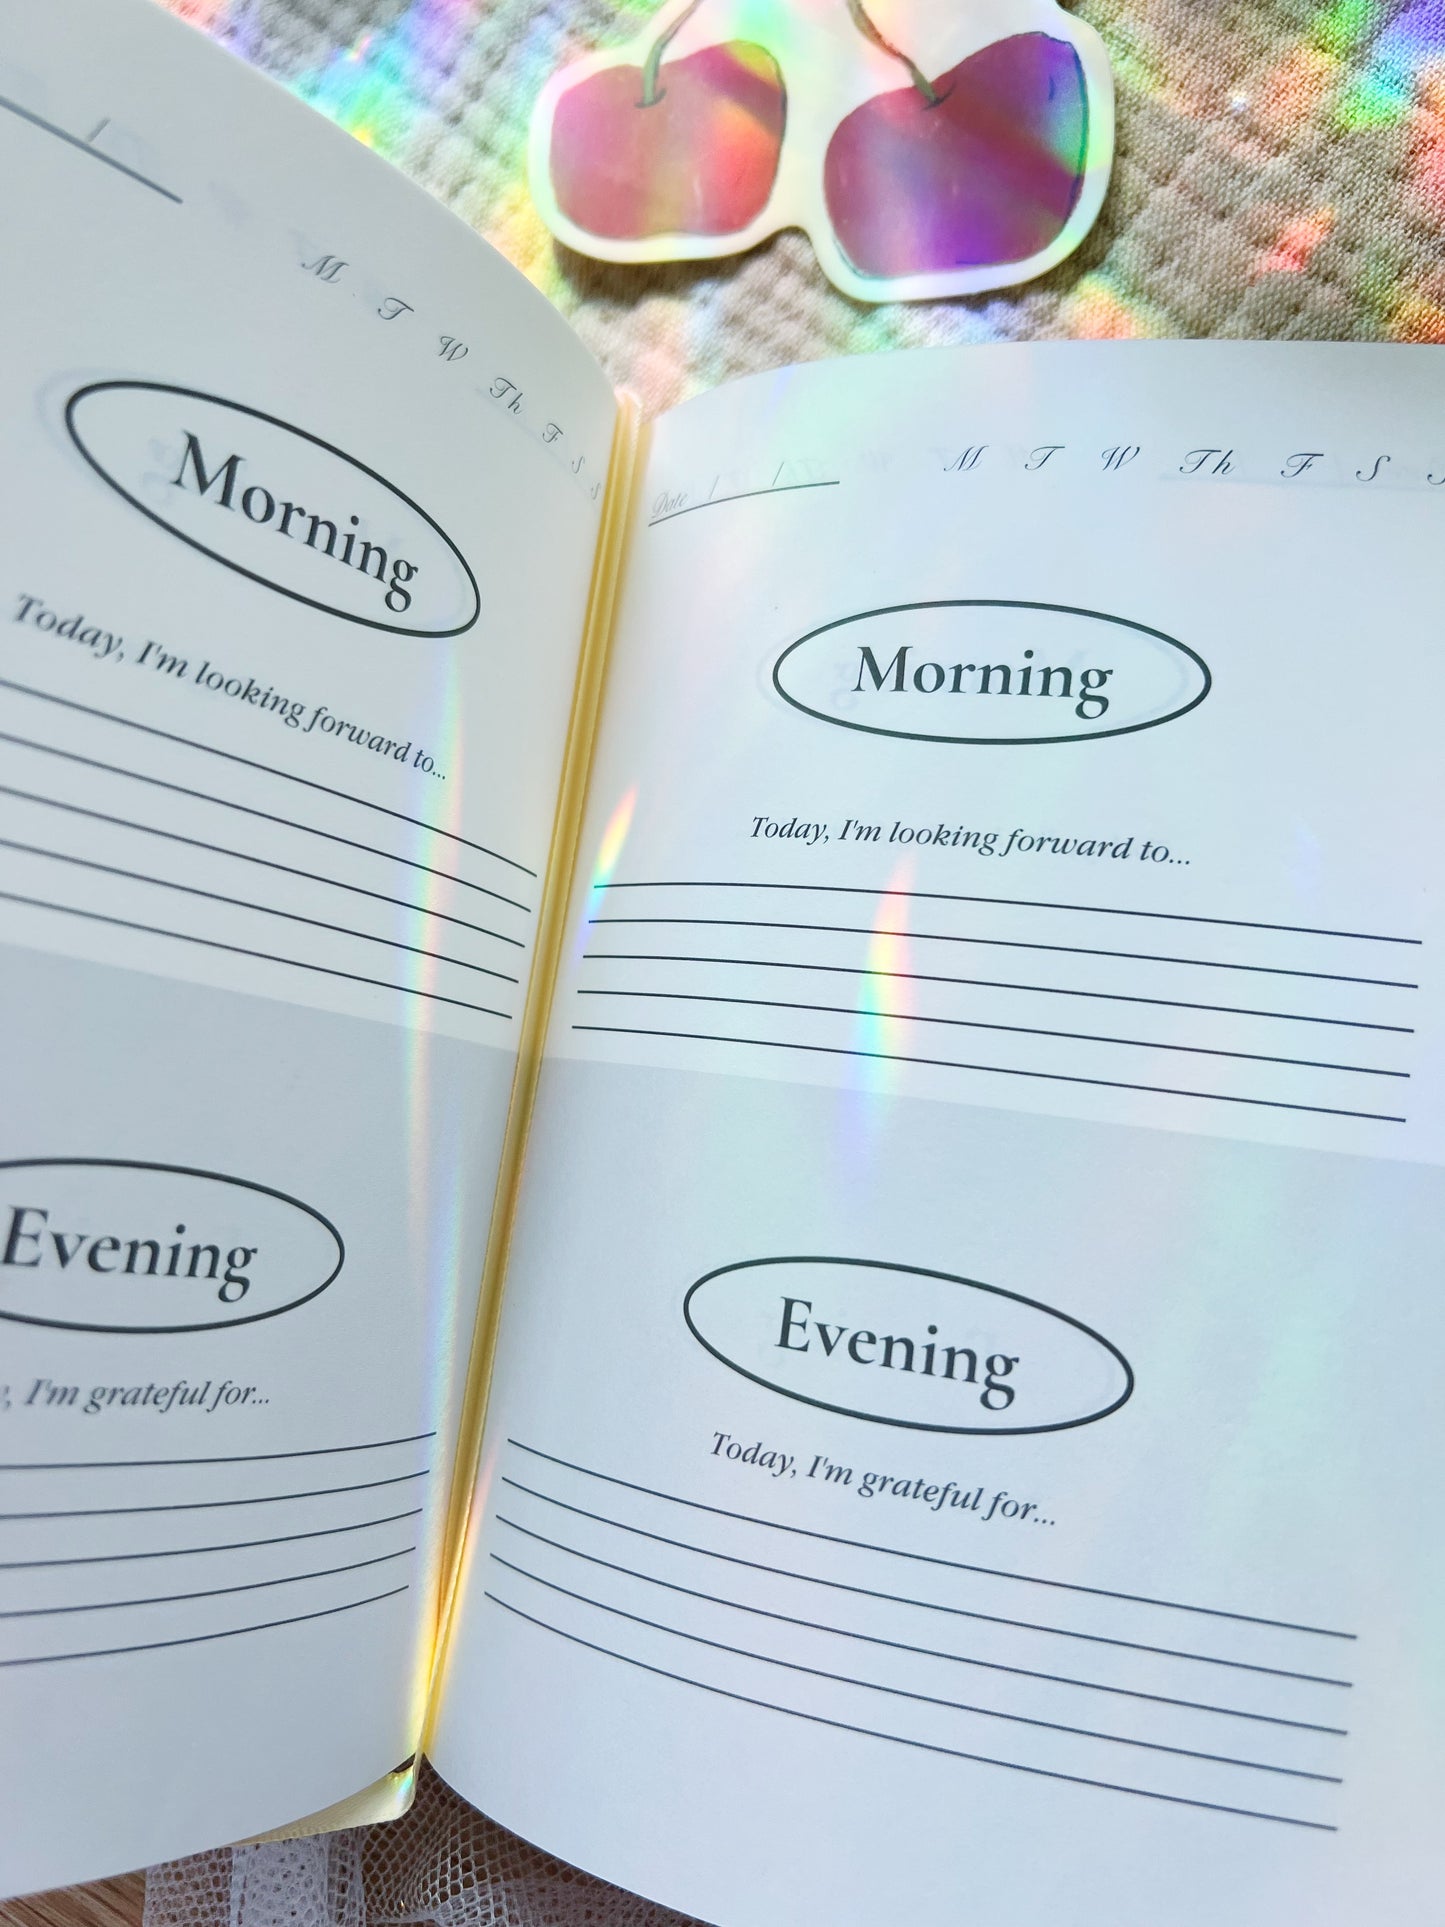 M T W Th F S S
Morning
Today, I'm looking forward to...
Evening
I'm grateful for...
Date / / M T W Th F S
Morning
Today, I'm looking forward to...
Evening
Today, I'm grateful for...